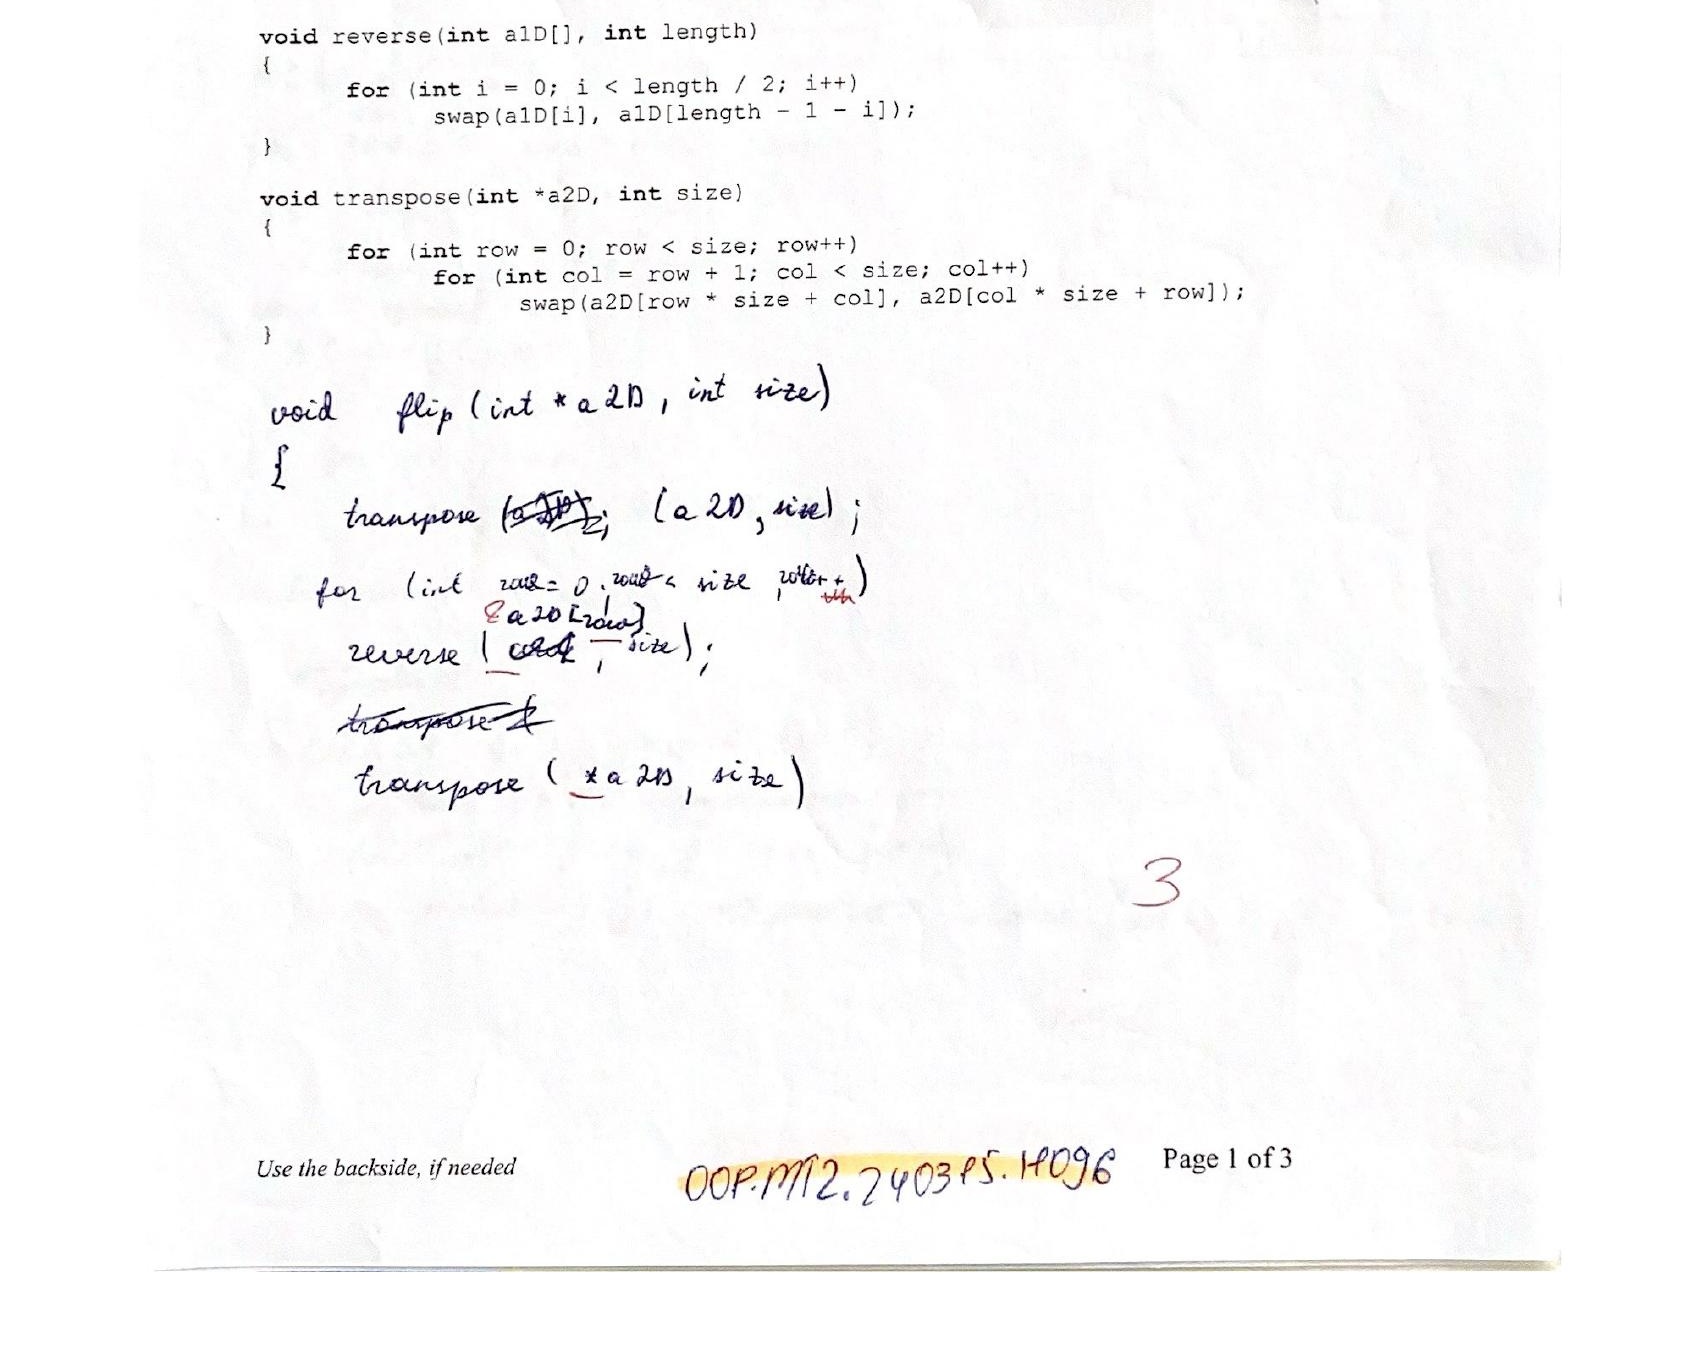 void reverse(int a1D[], int length)
{
for (int i = 0; i < length / 2; i++)
swap(a1D[i], a1D[length - 1 - i]);
}
void transpose(int *a2D, int size)
{
for (int row = 0; row < size; row++)
for (int col = row + 1; col < size; col++)
swap(a2D[row * size + col], a2D[col * size + row]);
}
void flip (int * a2D, int size)
{
transpose (a2D, size);
for (int row = 0; row < size; row++)
&a2D[row]
reverse ( , size);
transpose (
transpose ( *a2D, size)
3
Use the backside, if needed
OOP.MT2.240315.H096
Page 1 of 3